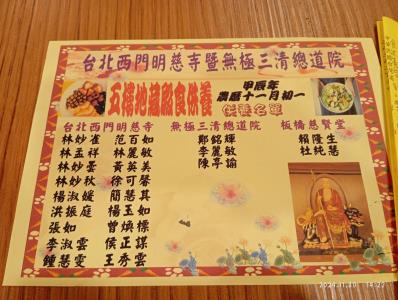 台北西門明慈寺暨無極三清總道院
五檀地藏殿食供養
甲辰年
農曆十一月初一
供養名單
台北西門明慈寺
無極三清總道院
板橋慈賢堂
林妙雀 范百如 鄭銘輝 賴隆生
林孟祥 林麗敏 李麗敏 杜純慧
林妙雲 黃英美 陳亭諭
林妙秋 徐可馨
楊淑媛 簡慧真
洪振庭 楊玉如
張如 曾煥標
李淑雲 侯正謀
鍾慧雯 王秀雲
2024.11.30 14:22